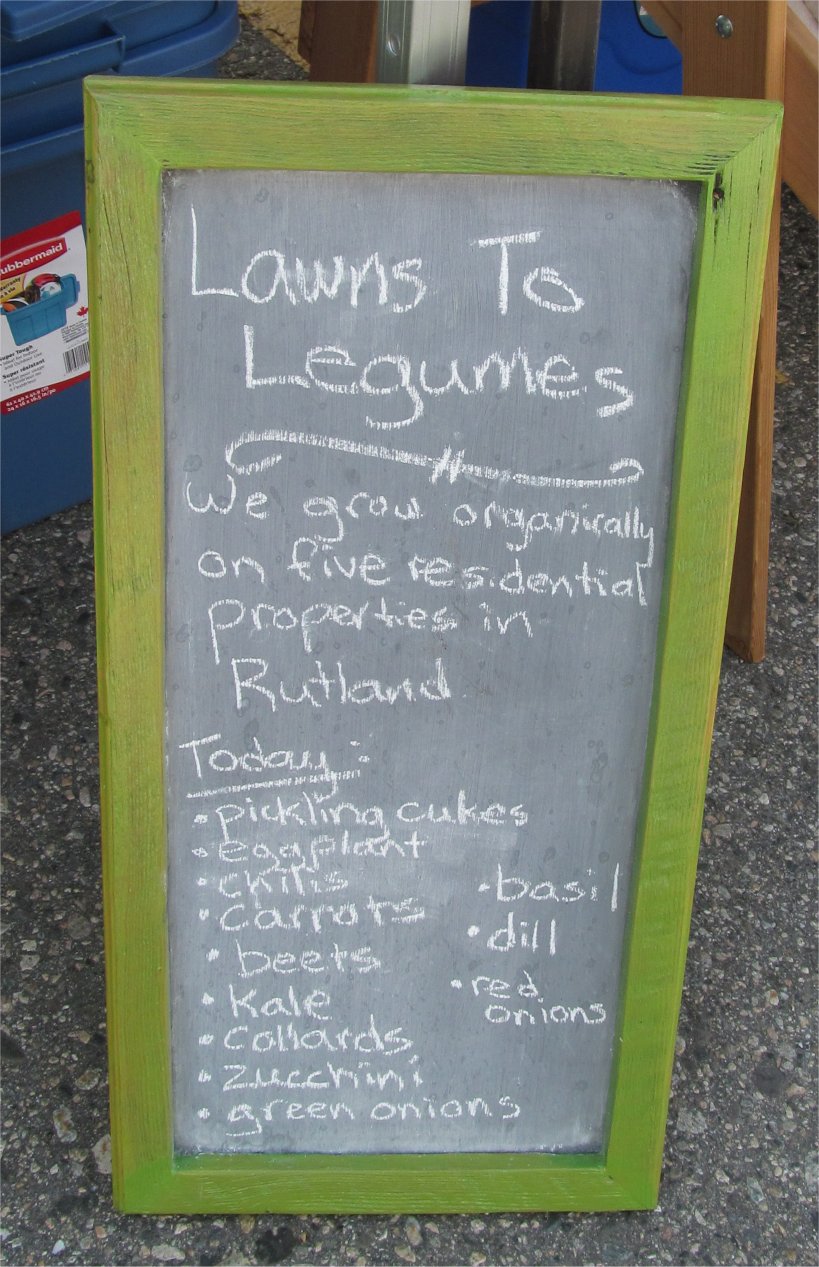 Lawns To
Legumes
We grow organically
on five residential
properties in
Rutland
Today:
• pickling cukes
• eggplant
• chilis
• carrots
• beets
• kale
• collards
• zucchini
• green onions
• basil
• dill
• red
onions
ubbermaid
Super Tough
Super résistant